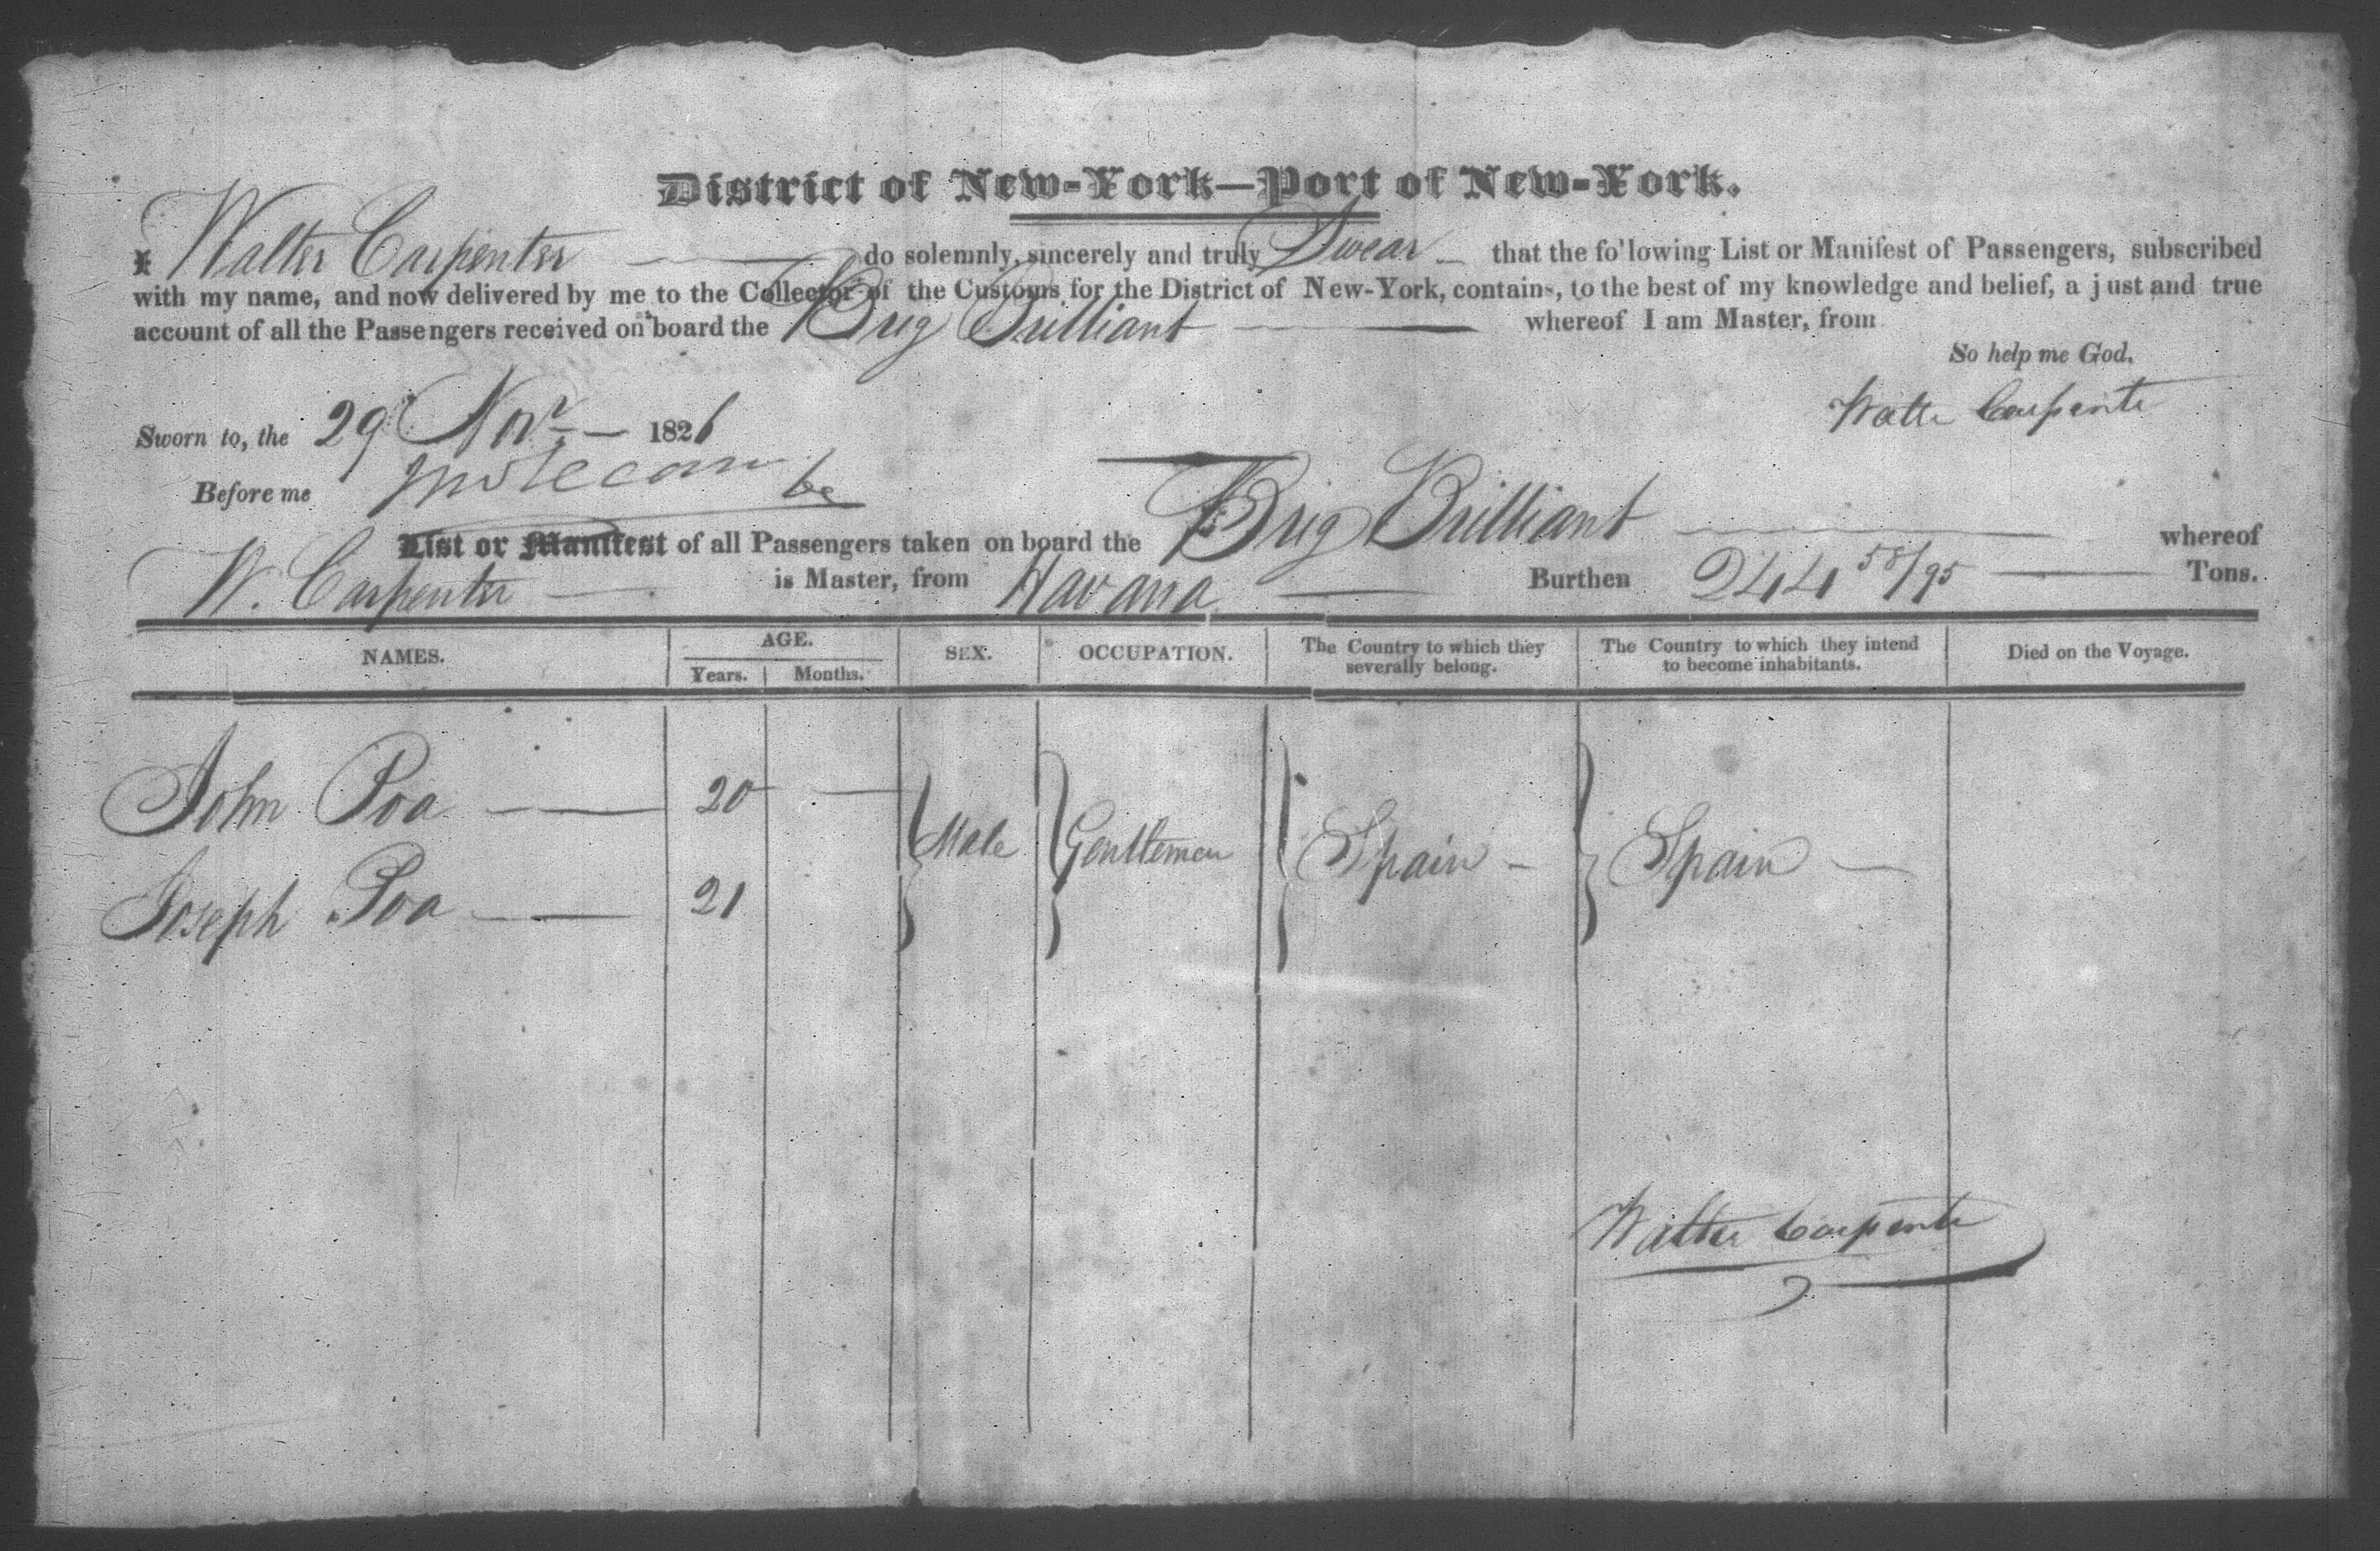 District of New-York—Port of New-York.
I Walter Carpenter do solemnly, sincerely and truly Swear that the following List or Manifest of Passengers, subscribed
with my name, and now delivered by me to the Collector of the Customs for the District of New-York, contains, to the best of my knowledge and belief, a just and true
account of all the Passengers received on board the Brig Brilliant whereof I am Master, from
So help me God.
Sworn to, the 29 Novr 1826
Walter Carpenter
Before me
List or Manifest of all Passengers taken on board the Brig Brilliant whereof
W. Carpenter is Master, from Havana Burthen 244 58/95 Tons.
NAMES. AGE. SEX. OCCUPATION. The Country to which they severally belong. The Country to which they intend to become inhabitants. Died on the Voyage.
Years. Months.
John Poa 20
Male Gentlemen Spain Spain
Joseph Poa 21
Walter Carpenter